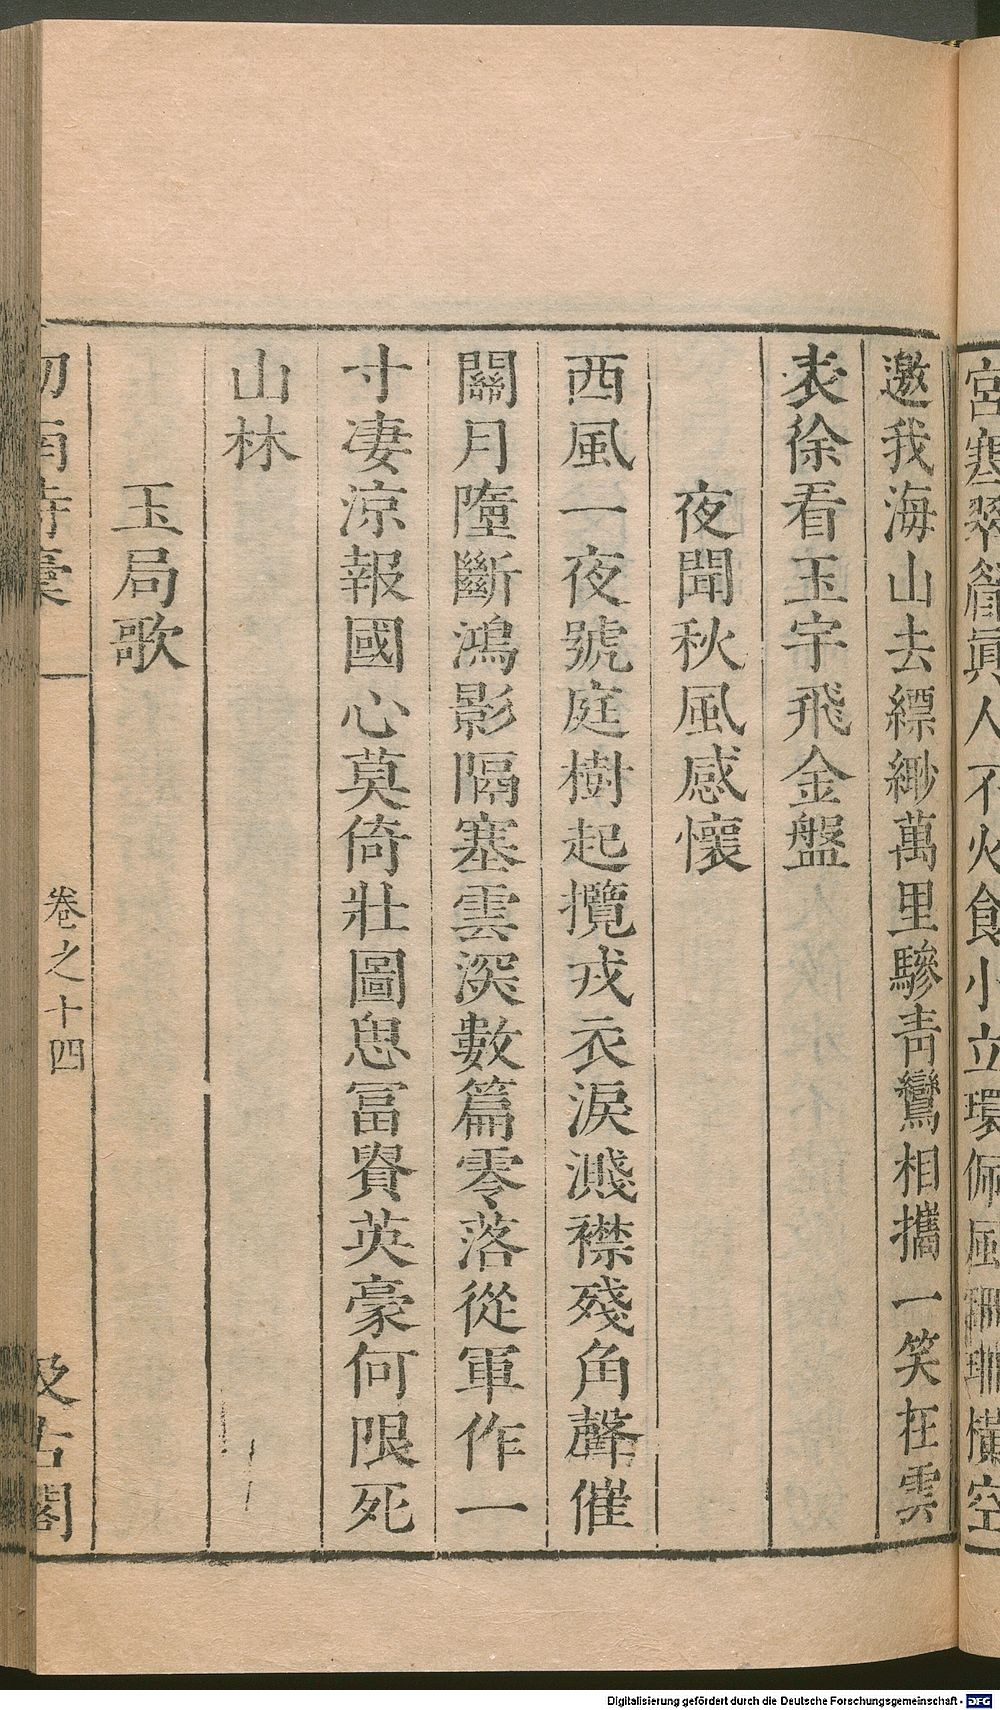 宮塞翠䈂眞人不火食小立環佩風珊珊橫空
邀我海山去縹緲萬里驂青鸞相攜一笑在雲
表徐看玉宇飛金盤
夜聞秋風感懷
西風一夜號庭樹起攬戎衣淚濺襟殘角聲催
關月墮斷鴻影隔塞雲深數篇零落從軍作一
寸凄涼報國心莫倚壯圖思冨貴英豪何限死
山林
玉局歌
劒南詩稾
卷之十四
汲古閣
Digitalisierung gefördert durch die Deutsche Forschungsgemeinschaft - DFG